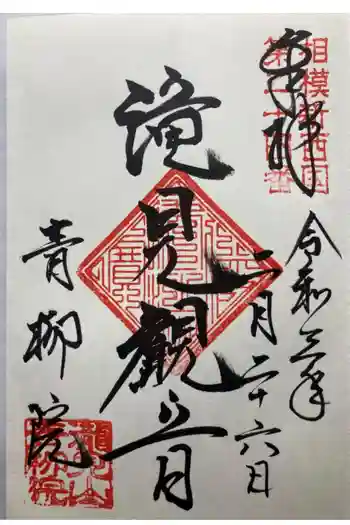 奉拝
相模新西国
第二十四番
令和三年
二月二十六日
滝見観音
青柳院